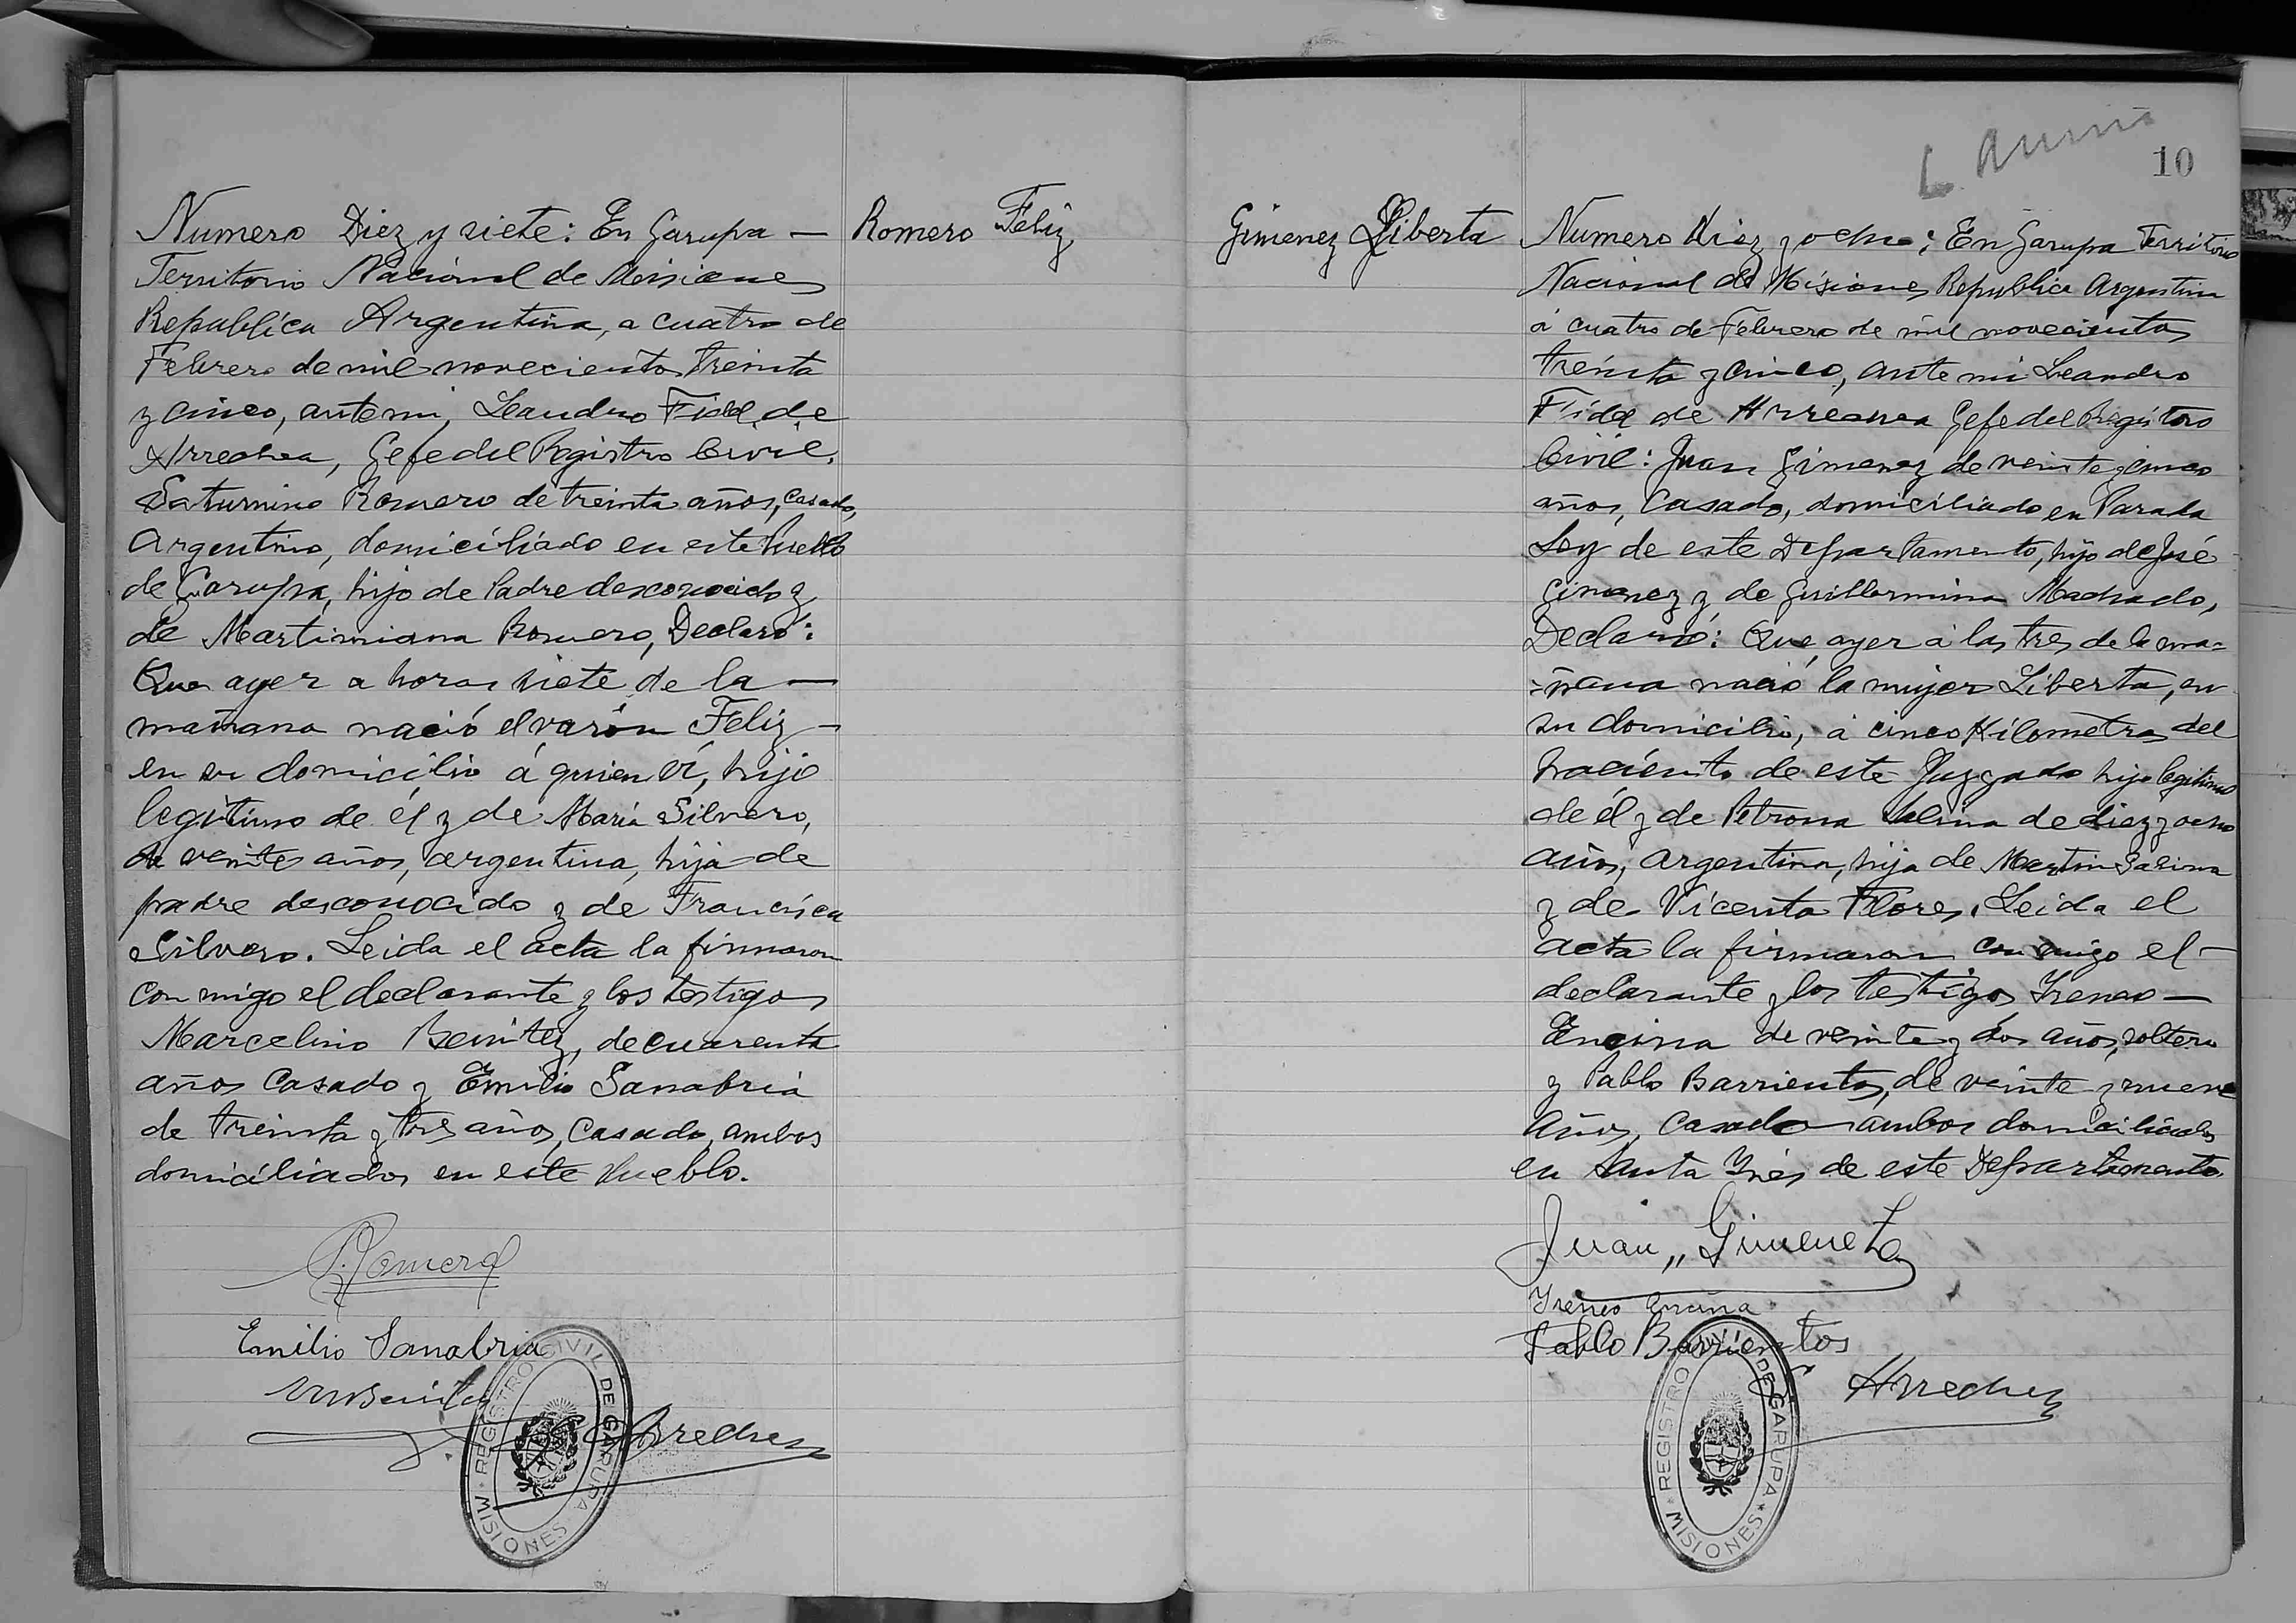 Numero Diez y siete: En Garupa —
Territorio Nacional de Misiones
Republica Argentina, a cuatro de
Febrero de mil novecientos treinta
y cinco, ante mi, Leandro Fidel de
Arrechea, Gefe del Registro Civil.
Saturnino Romero de treinta años, casado,
Argentino, domiciliado en este Pueblo
de Garupa, hijo de Padre desconocido y
de Martimiana Romero, Declaró:
Que ayer a horas siete de la —
mañana nació el varón Feliz —
en su domicilio á quien ví, hijo
legitimo de él y de María Silvero,
de veinte años, argentina, hija de
padre desconocido y de Francisca
Silvero. Leida el acta la firmaron
con migo el declarante y los testigos
Marcelino Benitez, de cuarenta
años casado y Emilio Sanabria
de treinta y tres años, casado, ambos
domiciliados en este Pueblo.
Romero
Emilio Sanabria
MBenitez
Arrechea
REGISTRO CIVIL DE GARUPA
MISIONES
Romero Feliz
10
Gimenez Liberta
Numero Diez y ocho: En Garupa Territorio
Nacional de Misiones Republica Argentina
á cuatro de Febrero de mil novecientos
treinta y cinco, ante mi Leandro
Fidel de Arrechea Gefe del Registro
Civil: Juan Gimenez de veinte y cinco
años, Casado, domiciliado en Parada
Ley de este Departamento, hijo de José
Gimenez y de Guillermina Machado,
Declaró: Que ayer á las tres de la ma=
=ñana nació la mujer Liberta, en
su domicilio, á cinco Kilometros del
naciento de este Juzgado hija legitima
de él y de Petrona Salina de diez y ocho
años, argentina, hija de Martin Salina
y de Vicenta Flores. Leida el
acta la firmaron con migo el —
declarante y los testigos Yreneo —
Encina de veinte y dos años, soltero
y Pablo Barrientos, de veinte y nueve
años, casado ambos domiciliados
en Santa Ynés de este Departamento
Juan Gimenez
Yreneo Encina
Pablo Barrientos
Arrechea
REGISTRO CIVIL DE GARUPA
MISIONES